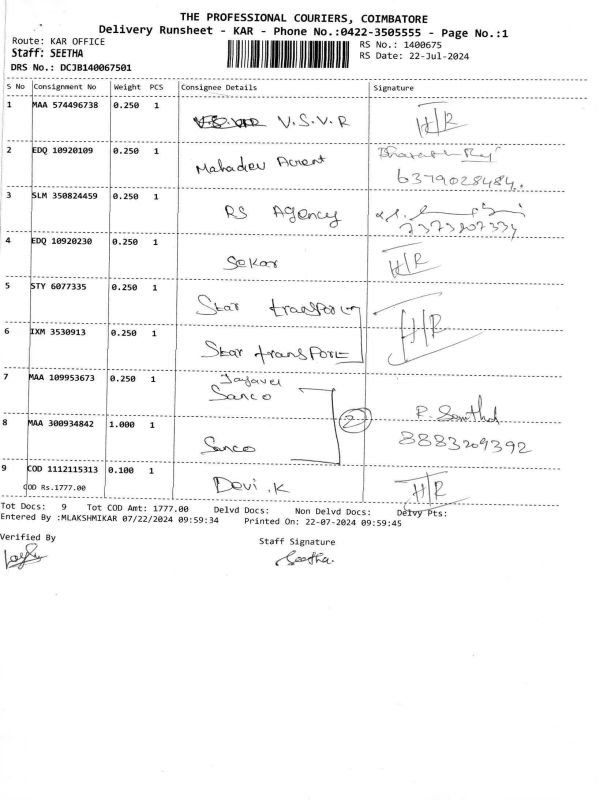 THE PROFESSIONAL COURIERS, COIMBATORE
Delivery Runsheet - KAR - Phone No.:0422-3505555 - Page No.:1
Route: KAR OFFICE
Staff: SEETHA
DRS No.: DCJB140067501
RS No.: 1400675
RS Date: 22-Jul-2024
S No Consignment No Weight PCS Consignee Details Signature
1 MAA 574496738 0.250 1 V.S.V.R H/R
2 EDQ 10920109 0.250 1 Mahadev
6379028484.
3 SLM 350824459 0.250 1 RS Agency
7373207334
4 EDQ 10920230 0.250 1 Sekar H/R
5 STY 6077335 0.250 1 Star transport
H/R
6 IXM 3530913 0.250 1 Star transport
7 MAA 109953673 0.250 1
Sanco
2
8 MAA 300934842 1.000 1 Sanco
8883209392
9 COD 1112115313 0.100 1 Devi.K H/R
COD Rs.1777.00
Tot Docs: 9 Tot COD Amt: 1777.00 Delvd Docs: Non Delvd Docs: Delvy Pts:
Entered By :MLAKSHMIKAR 07/22/2024 09:59:34 Printed On: 22-07-2024 09:59:45
Verified By Staff Signature
Seetha.